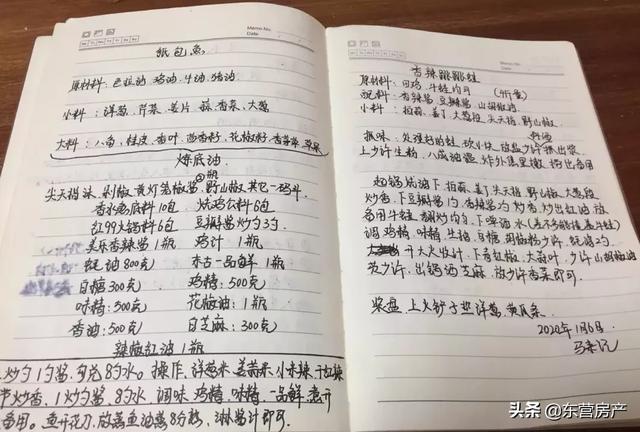 Memo No.
Date
纸包鱼
原材料：色拉油 鸡油 牛油 猪油
小料：洋葱、芹菜、姜片 蒜 香菜、大葱
大料：八角、桂皮、香叶、茴香籽、花椒籽、香草茅 草果
炼底油
尖天椒沫、剁椒、黄灯笼椒酱、野山椒、其它一码斗
香水鱼底料10包 烧鸡公料6包
红99火锅料6包 豆瓣酱炒勺3勺
美乐香辣酱1瓶 鸡汁1瓶
蚝油800克 东古一品鲜1瓶
白糖300克 鸡精：500克
味精：300克 花椒油：1瓶
香油：500克 白芝麻：300克
辣椒红油1瓶
炒勺1勺酱，可兑8勺水。操作，洋葱米、姜蒜米、小米辣、干红辣
节炒香，1炒勺酱，8勺水 调味 鸡精，味精，一品鲜，煮开
备用。鱼开花刀，放蒸鱼油蒸8分熟，淋酱汁即可。
Memo No.
Date
香辣跳跳蛙
原材料：田鸡、牛蛙均可（4斤量）
配料：香辣酱 豆瓣酱 山胡椒油
小料：拍蒜、姜丁、大葱段、尖天椒、野山椒
抓味：处理好的蛙，砍小块，放盐少许 抓出浆
料酒
上少许生粉，八成油温，炸外焦里嫩，捞出备用
起锅烧油，下拍蒜、姜丁、尖天椒、野山椒、大葱段
炒香，下豆瓣酱1勺，香辣酱2勺，炒香，炒出红油，放
备用牛蛙，翻炒均匀，下啤酒、水
调鸡精，味精，生抽，白糖，胡椒粉少许，蚝油2勺
开大火收汁，下青红椒、大蒜叶，少许山胡椒油
少许，出锅洒芝麻，放少许香菜即可。
装盘，上火炉子垫洋葱、黄瓜条。
2020年1月6日
头条 @东营房产